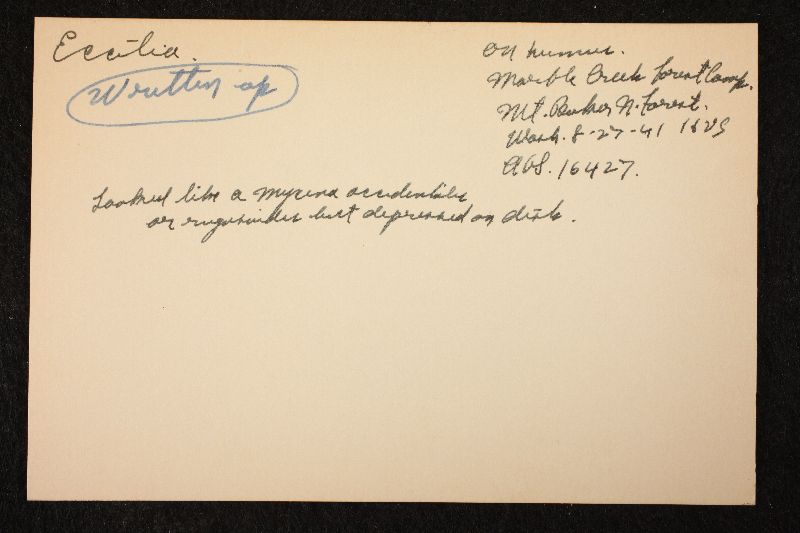 Eccilia.
Written up
On humus.
Marble Creek Forest Camp.
Mt. Baker N. Forest.
Wash. 8-27-41
AHS. 16427.
Looked like a Mycena occidentalis
or rugosoides but depressed on disk.